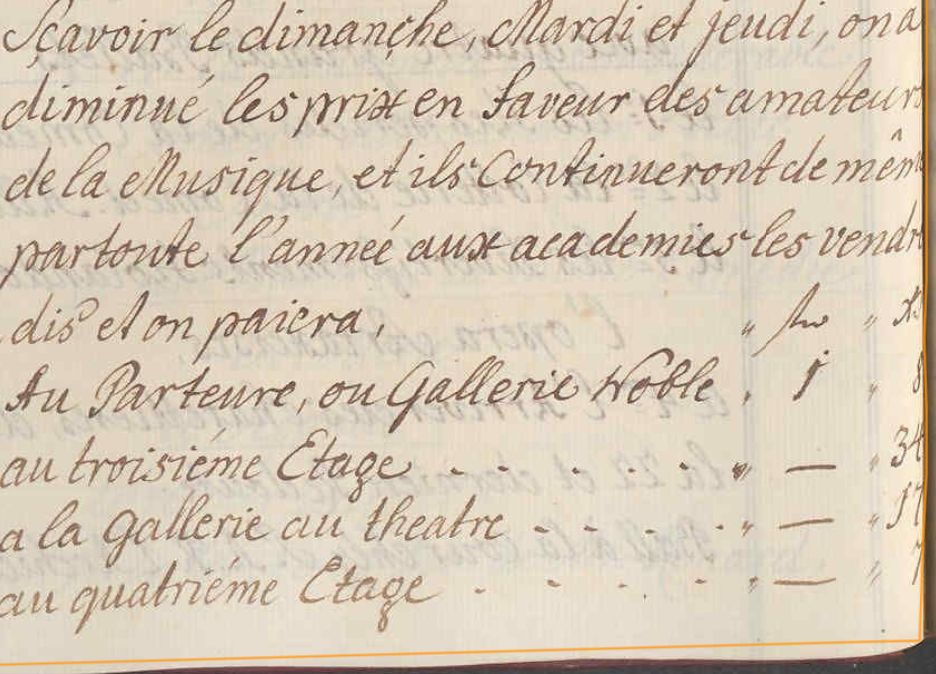 Sçavoir le dimançhe, Mardi et jeudi, on a
diminué les prix en faveur des amateurs
de la Musique, et ils Continueront de mêm
par toute l'anneé aux academies les vendre
dis et on paiera,
Au Parteure, ou Gallerie Noble " 1 " 8
au troisiéme Etage - - - - - - " — " 34
a la Gallerie au theatre - - - - " — " 17
au quatriéme Etage - - - - " — " 7